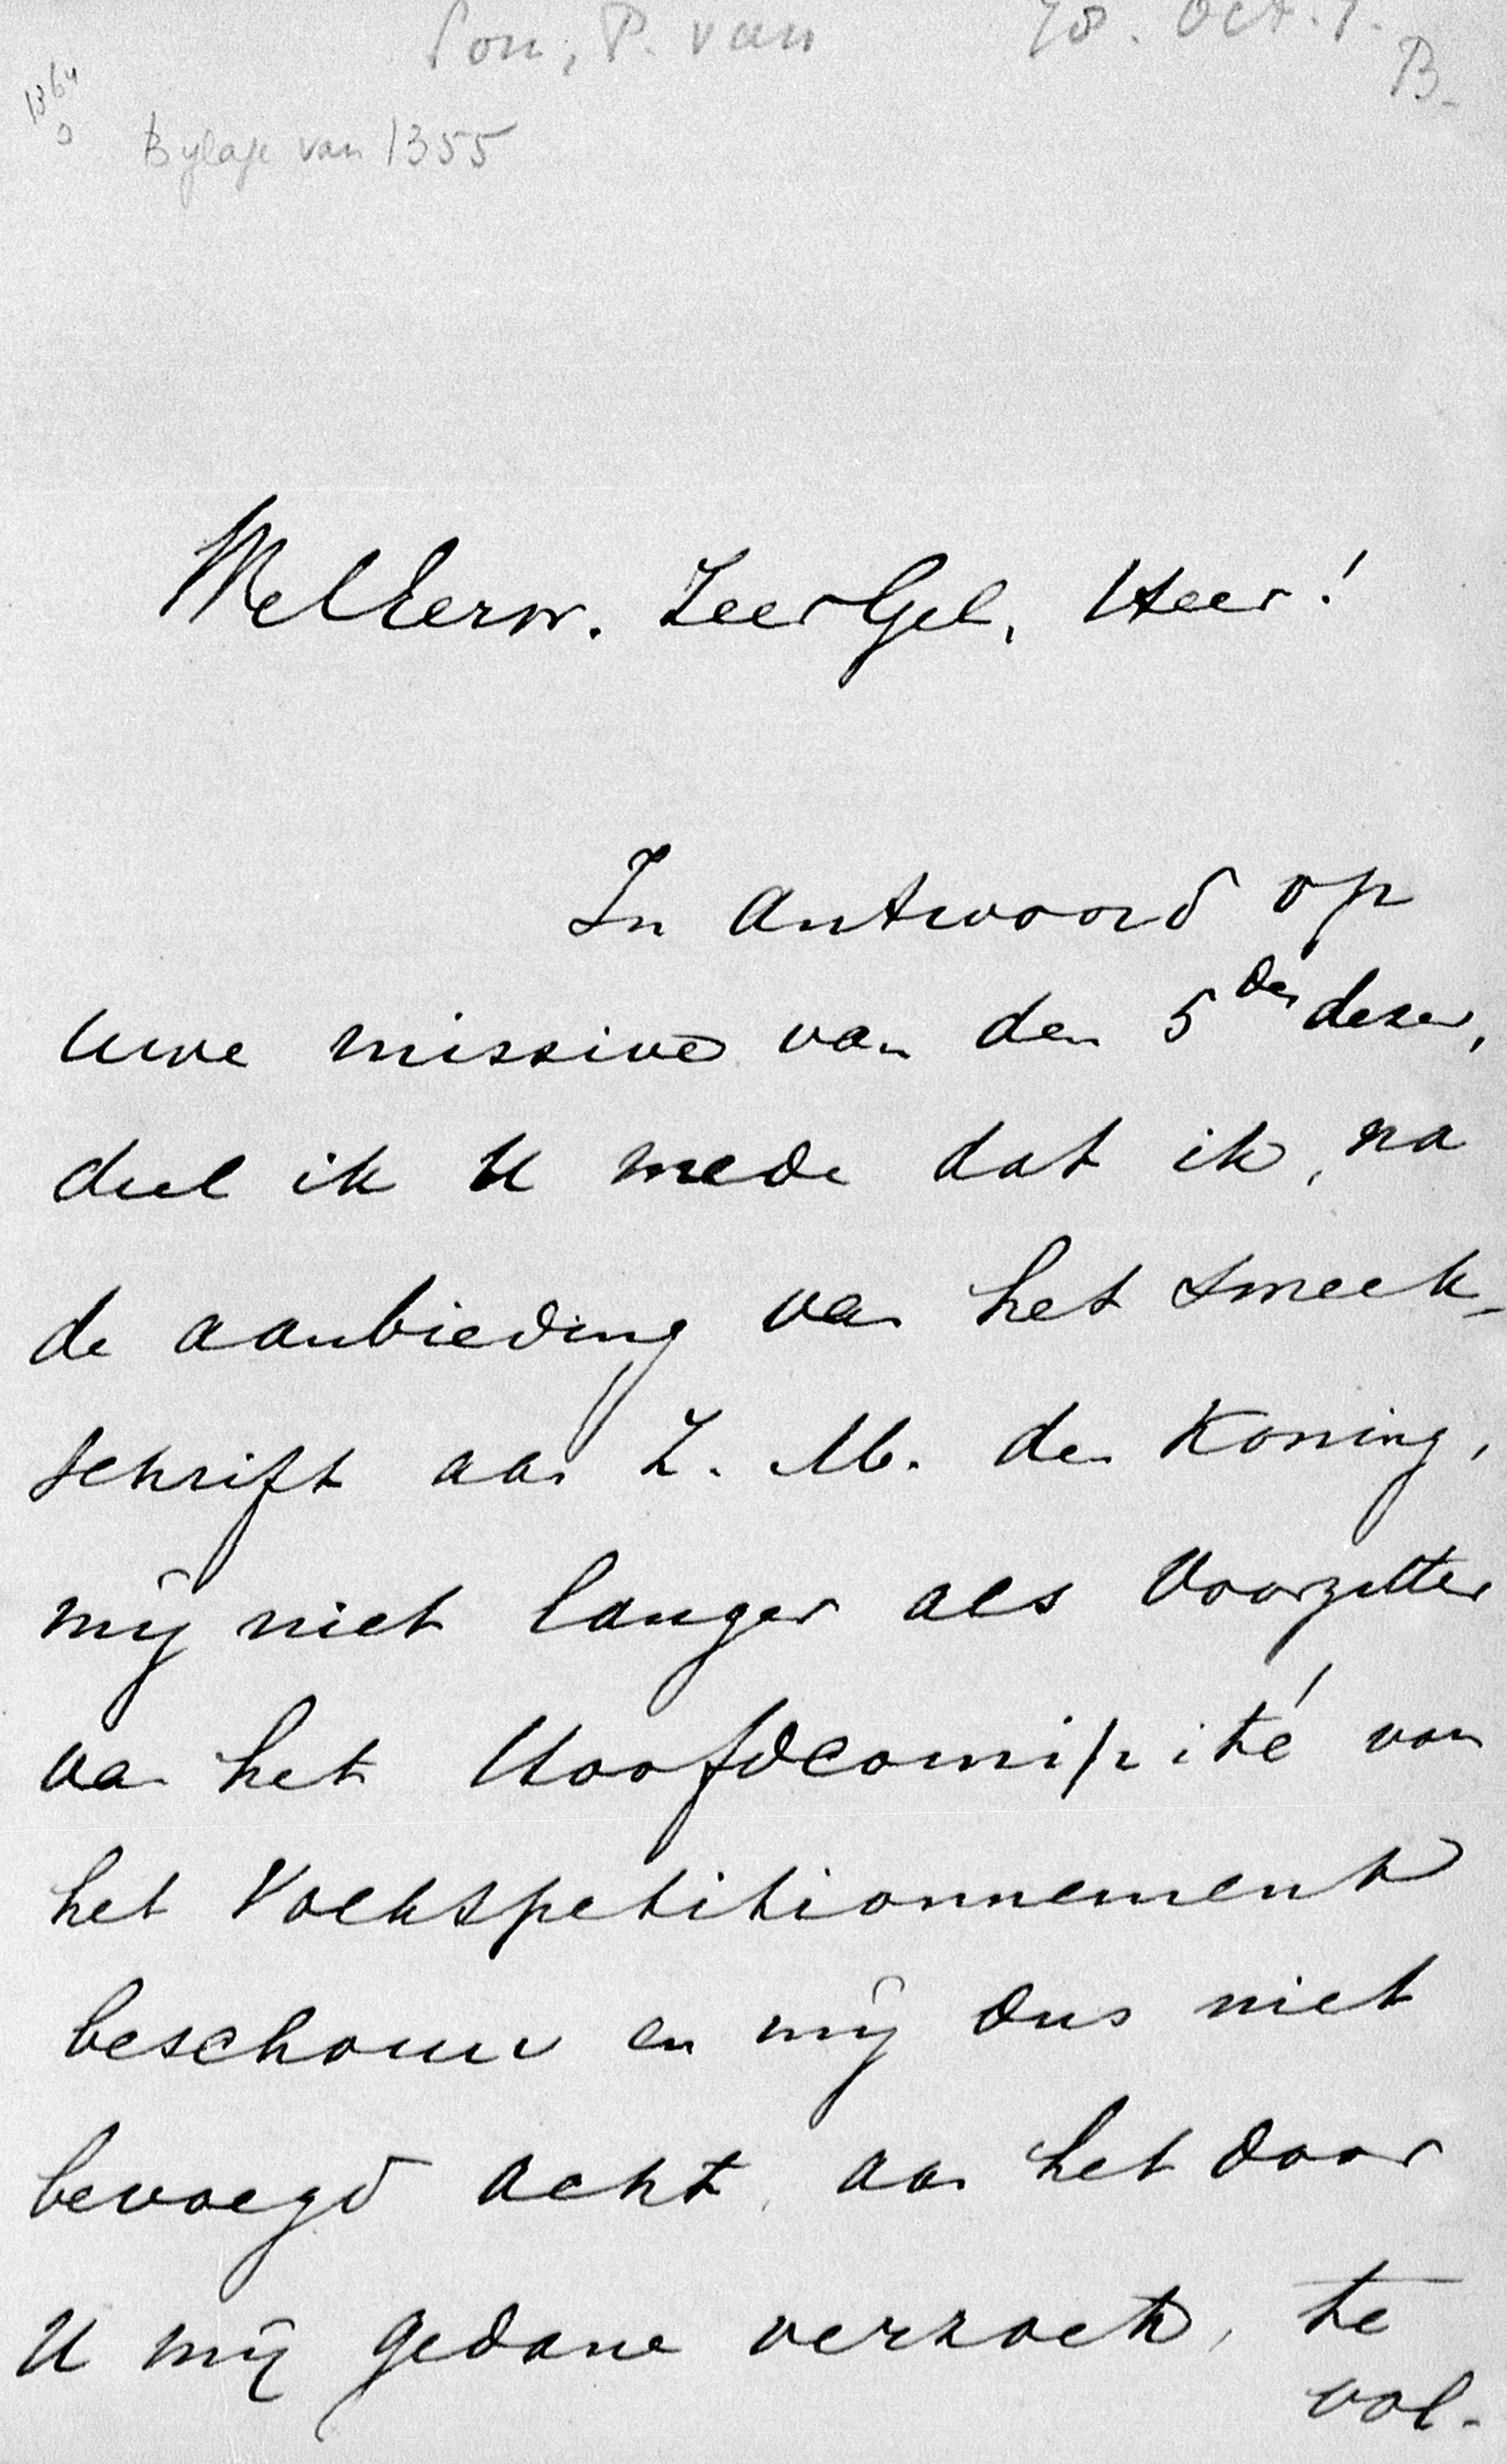 Son, P. van 78. Oct. 7.
B.
1364
Bylage van 1355
WelEerw. ZeerGel. Heer!
In antwoord op
Uwe missive van den 5den dezer,
deel ik U mede dat ik, na
de aanbieding van het smeek-
schrift aan Z. M. den Koning,
mij niet langer als Voorzitter
van het Hoofdcomité van
het Volkspetitionnement
beschouw en mij dus niet
bevoegd acht, aan het door
U mij gedane verzoek, te
vol-